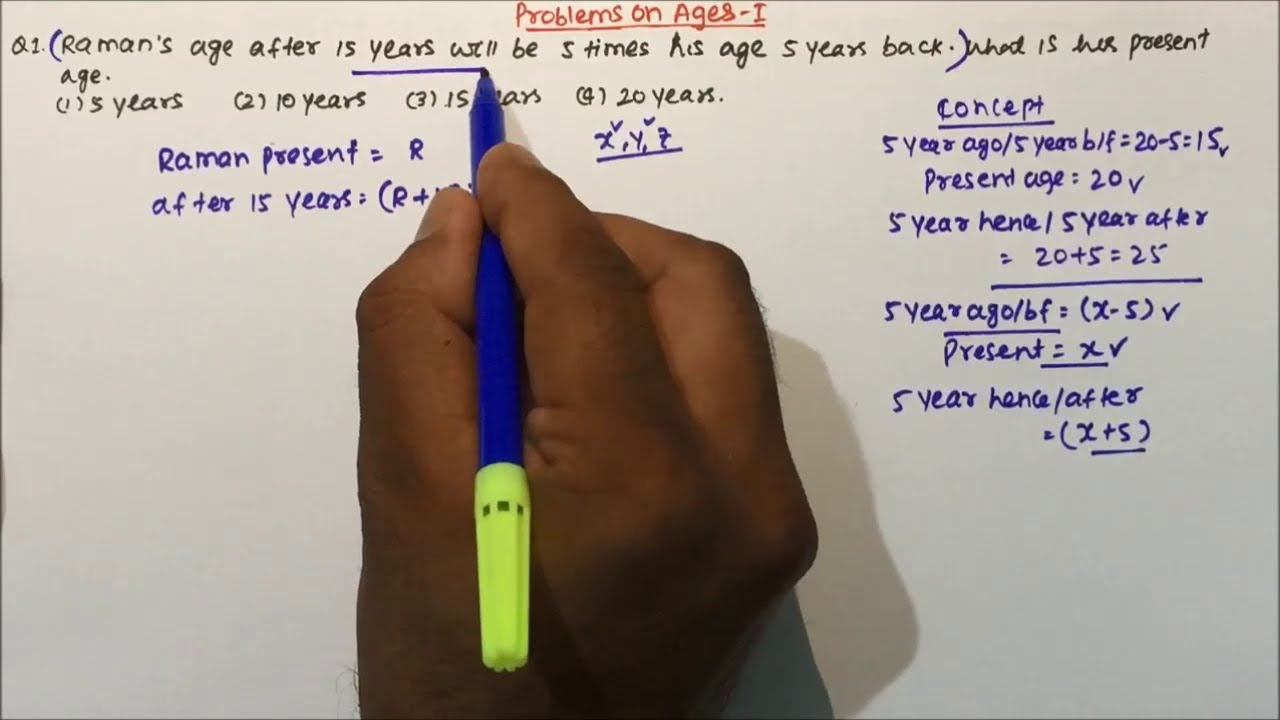 Problems on Ages-I
Q1. (Raman's age after 15 years will be 5 times his age 5 years back.) what is his present
age.
(1) 5 years (2) 10 years (3) 15 years (4) 20 years.
x, y, z
Raman present = R
after 15 years = (R+
Concept
5 year ago/5 year b/f = 20-5 = 15
Present age = 20
5 year hence / 5 year after
= 20+5 = 25
5 year ago/bf = (x-5)
Present = x
5 year hence/after
= (x+5)